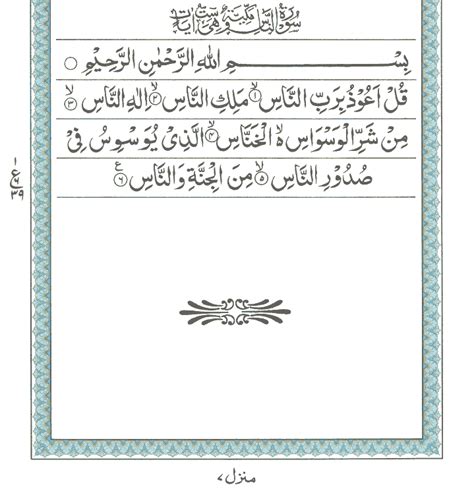 سُوْرَةُ النَّاسِ مَكِّيَّةٌ وَّهِيَ سِتُّ اٰيَاتٍ
بِسْمِ اللّٰهِ الرَّحْمٰنِ الرَّحِيْمِ ○
قُلْ اَعُوْذُ بِرَبِّ النَّاسِ ۙ﴿۱﴾ مَلِكِ النَّاسِ ۙ﴿۲﴾ اِلٰهِ النَّاسِ ۙ﴿۳﴾
مِنْ شَرِّ الْوَسْوَاسِ ۵ۙ الْخَنَّاسِ ۪ۙ﴿۴﴾ الَّذِیْ یُوَسْوِسُ فِیْ
صُدُوْرِ النَّاسِ ۙ﴿۵﴾ مِنَ الْجِنَّةِ وَالنَّاسِ ﴿۶﴾ ع
۱
ع
۳۹
منزل ۷